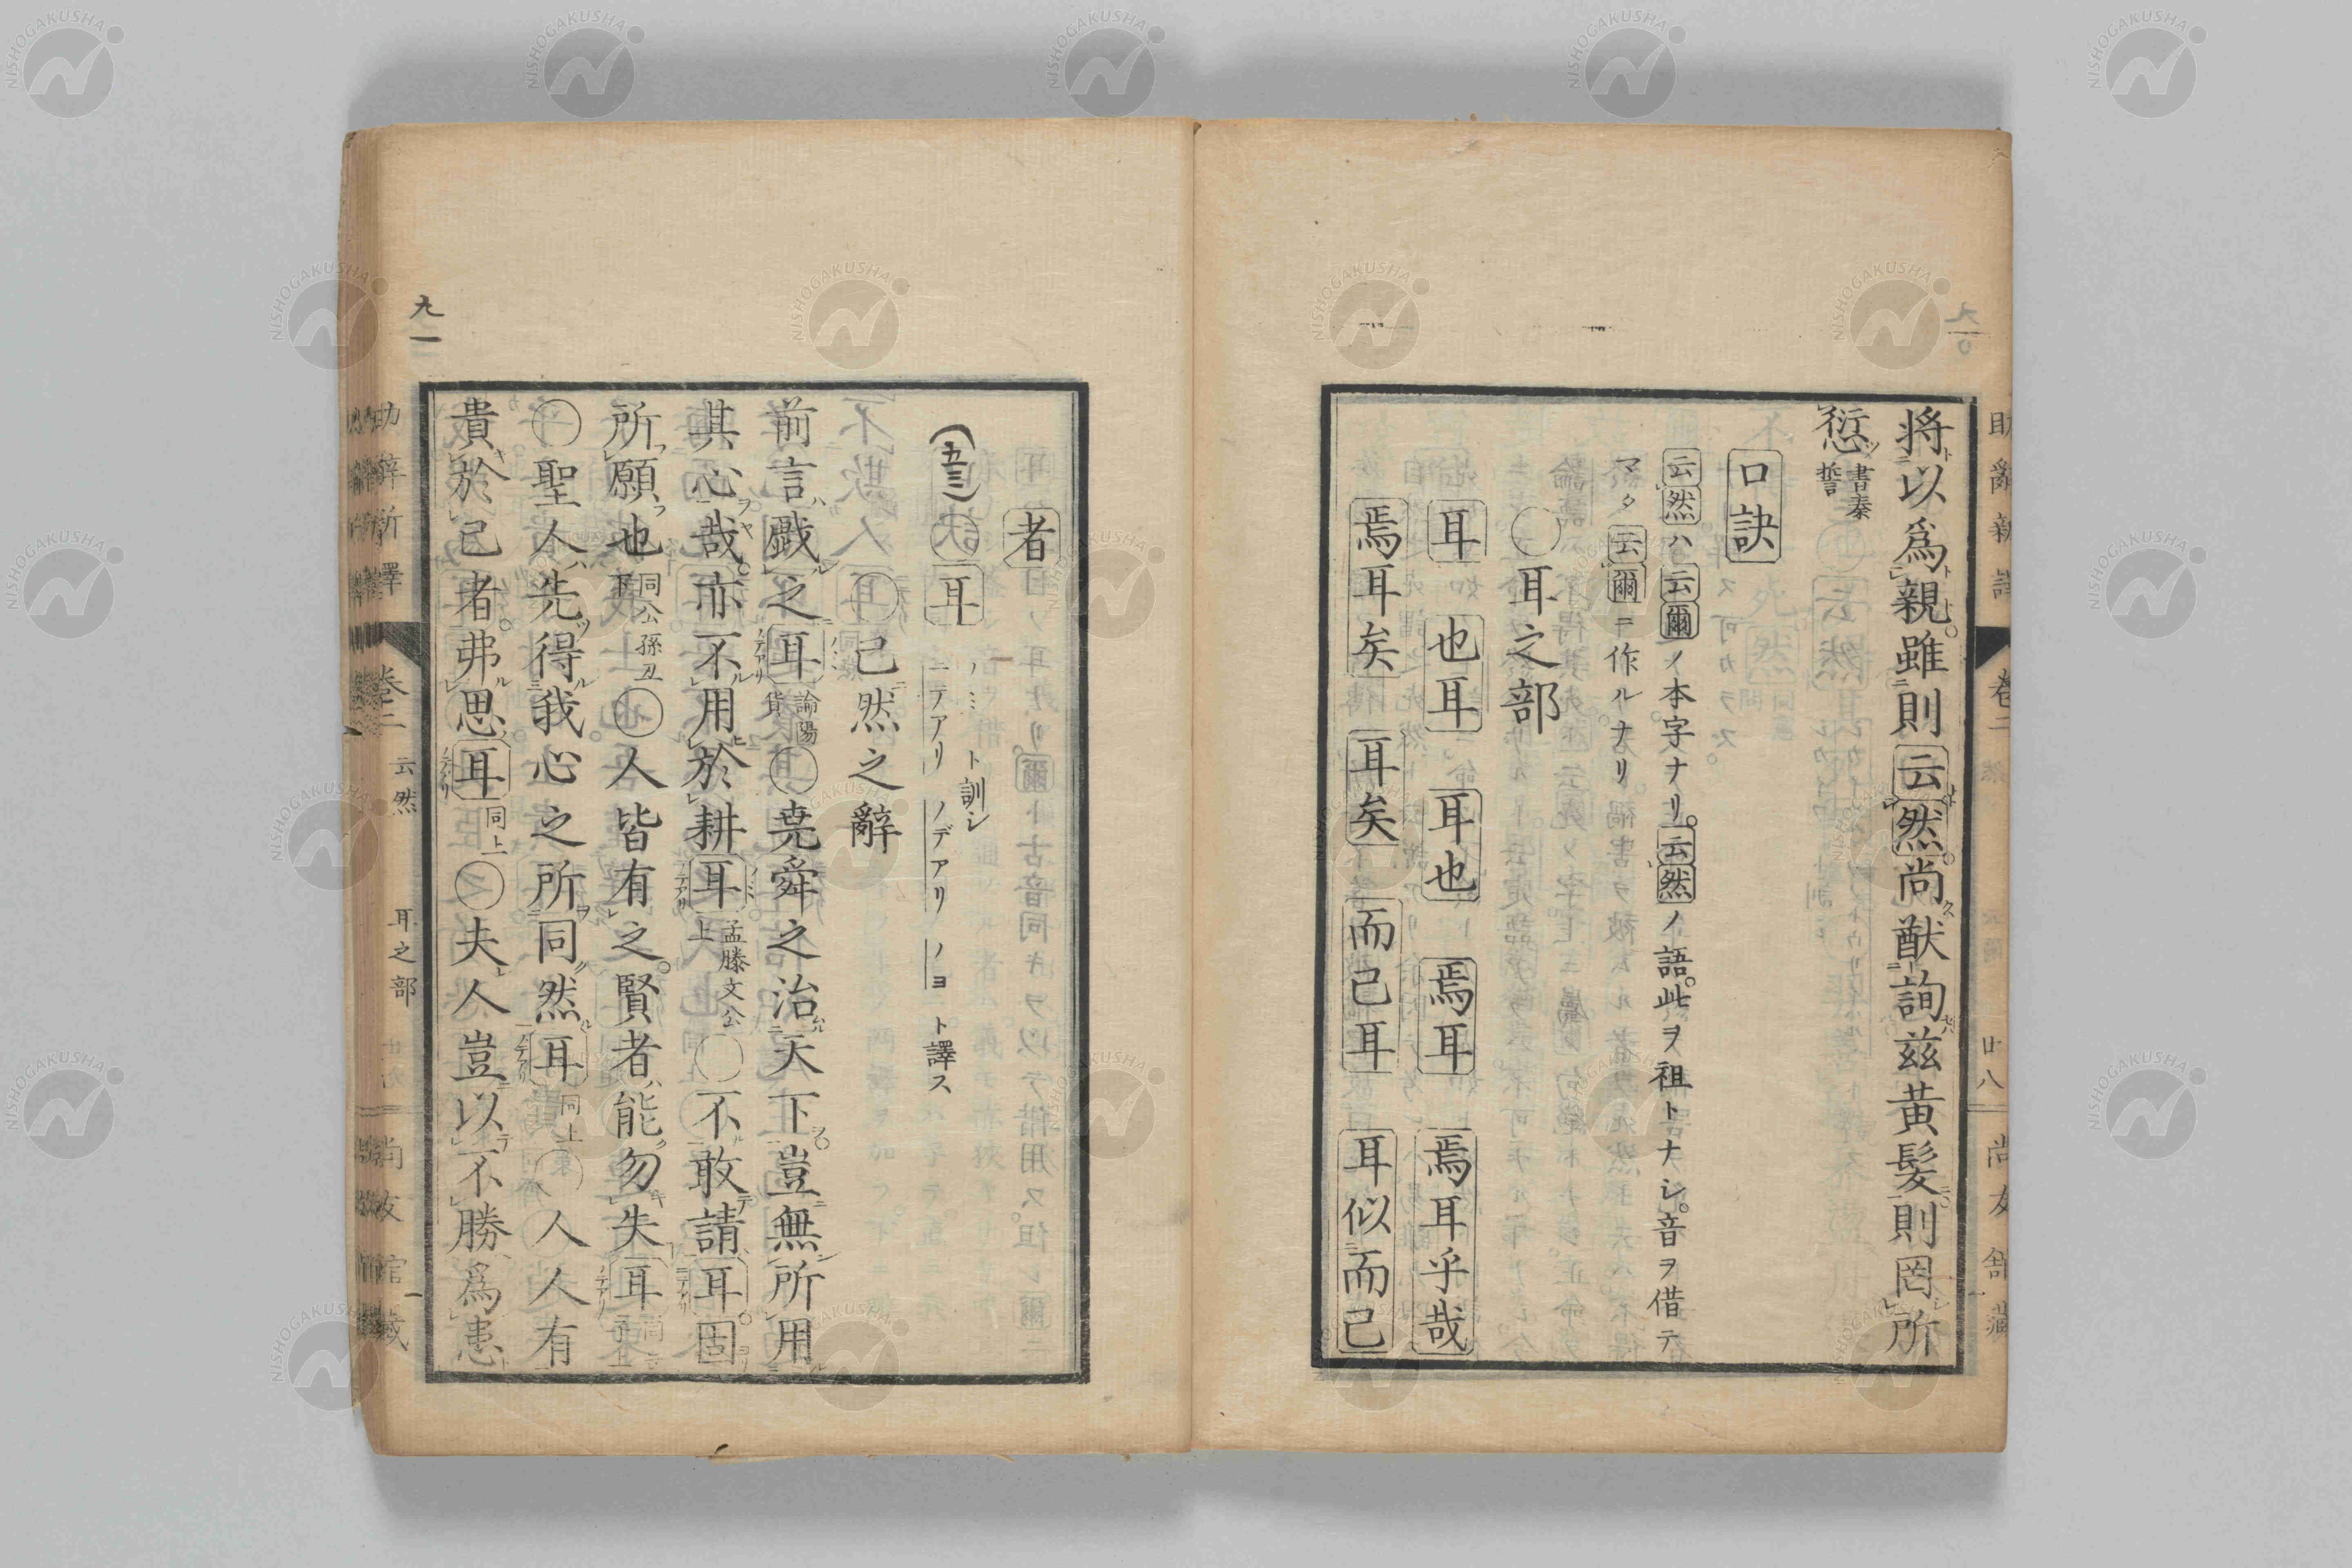 將以爲親雖則云然尚猷詢茲黃髮則罔所
愆 書秦誓
口訣
云然ハ云爾ノ本字ナリ。云然ノ語。此ヲ祖トナシ。音ヲ借テ
マタ云爾ニ作ルナリ
〇耳之部
耳 也耳 耳也 焉耳 焉耳乎哉
焉耳矣 耳矣 而已耳 耳似而已
者
(五三)〇耳 ノミ ト訓シ ニテアリ ノデアリ ノヨ ト譯ス
〇已然之辭
前言戲之耳 論陽貨 〇堯舜之治天下。豈無所用
其心哉。亦不用於耕耳 孟滕文公上 〇不敢請耳。固
所願也 同公孫丑下 〇人皆有之。賢者能勿失耳 同告上
〇聖人先得我心之所同然耳 同上 〇人人有
貴於己者。弗思耳 同上 〇夫人豈以不勝爲患
九一
卷二
云然
耳之部
卷二
廿八
NISHOGAKUSHA